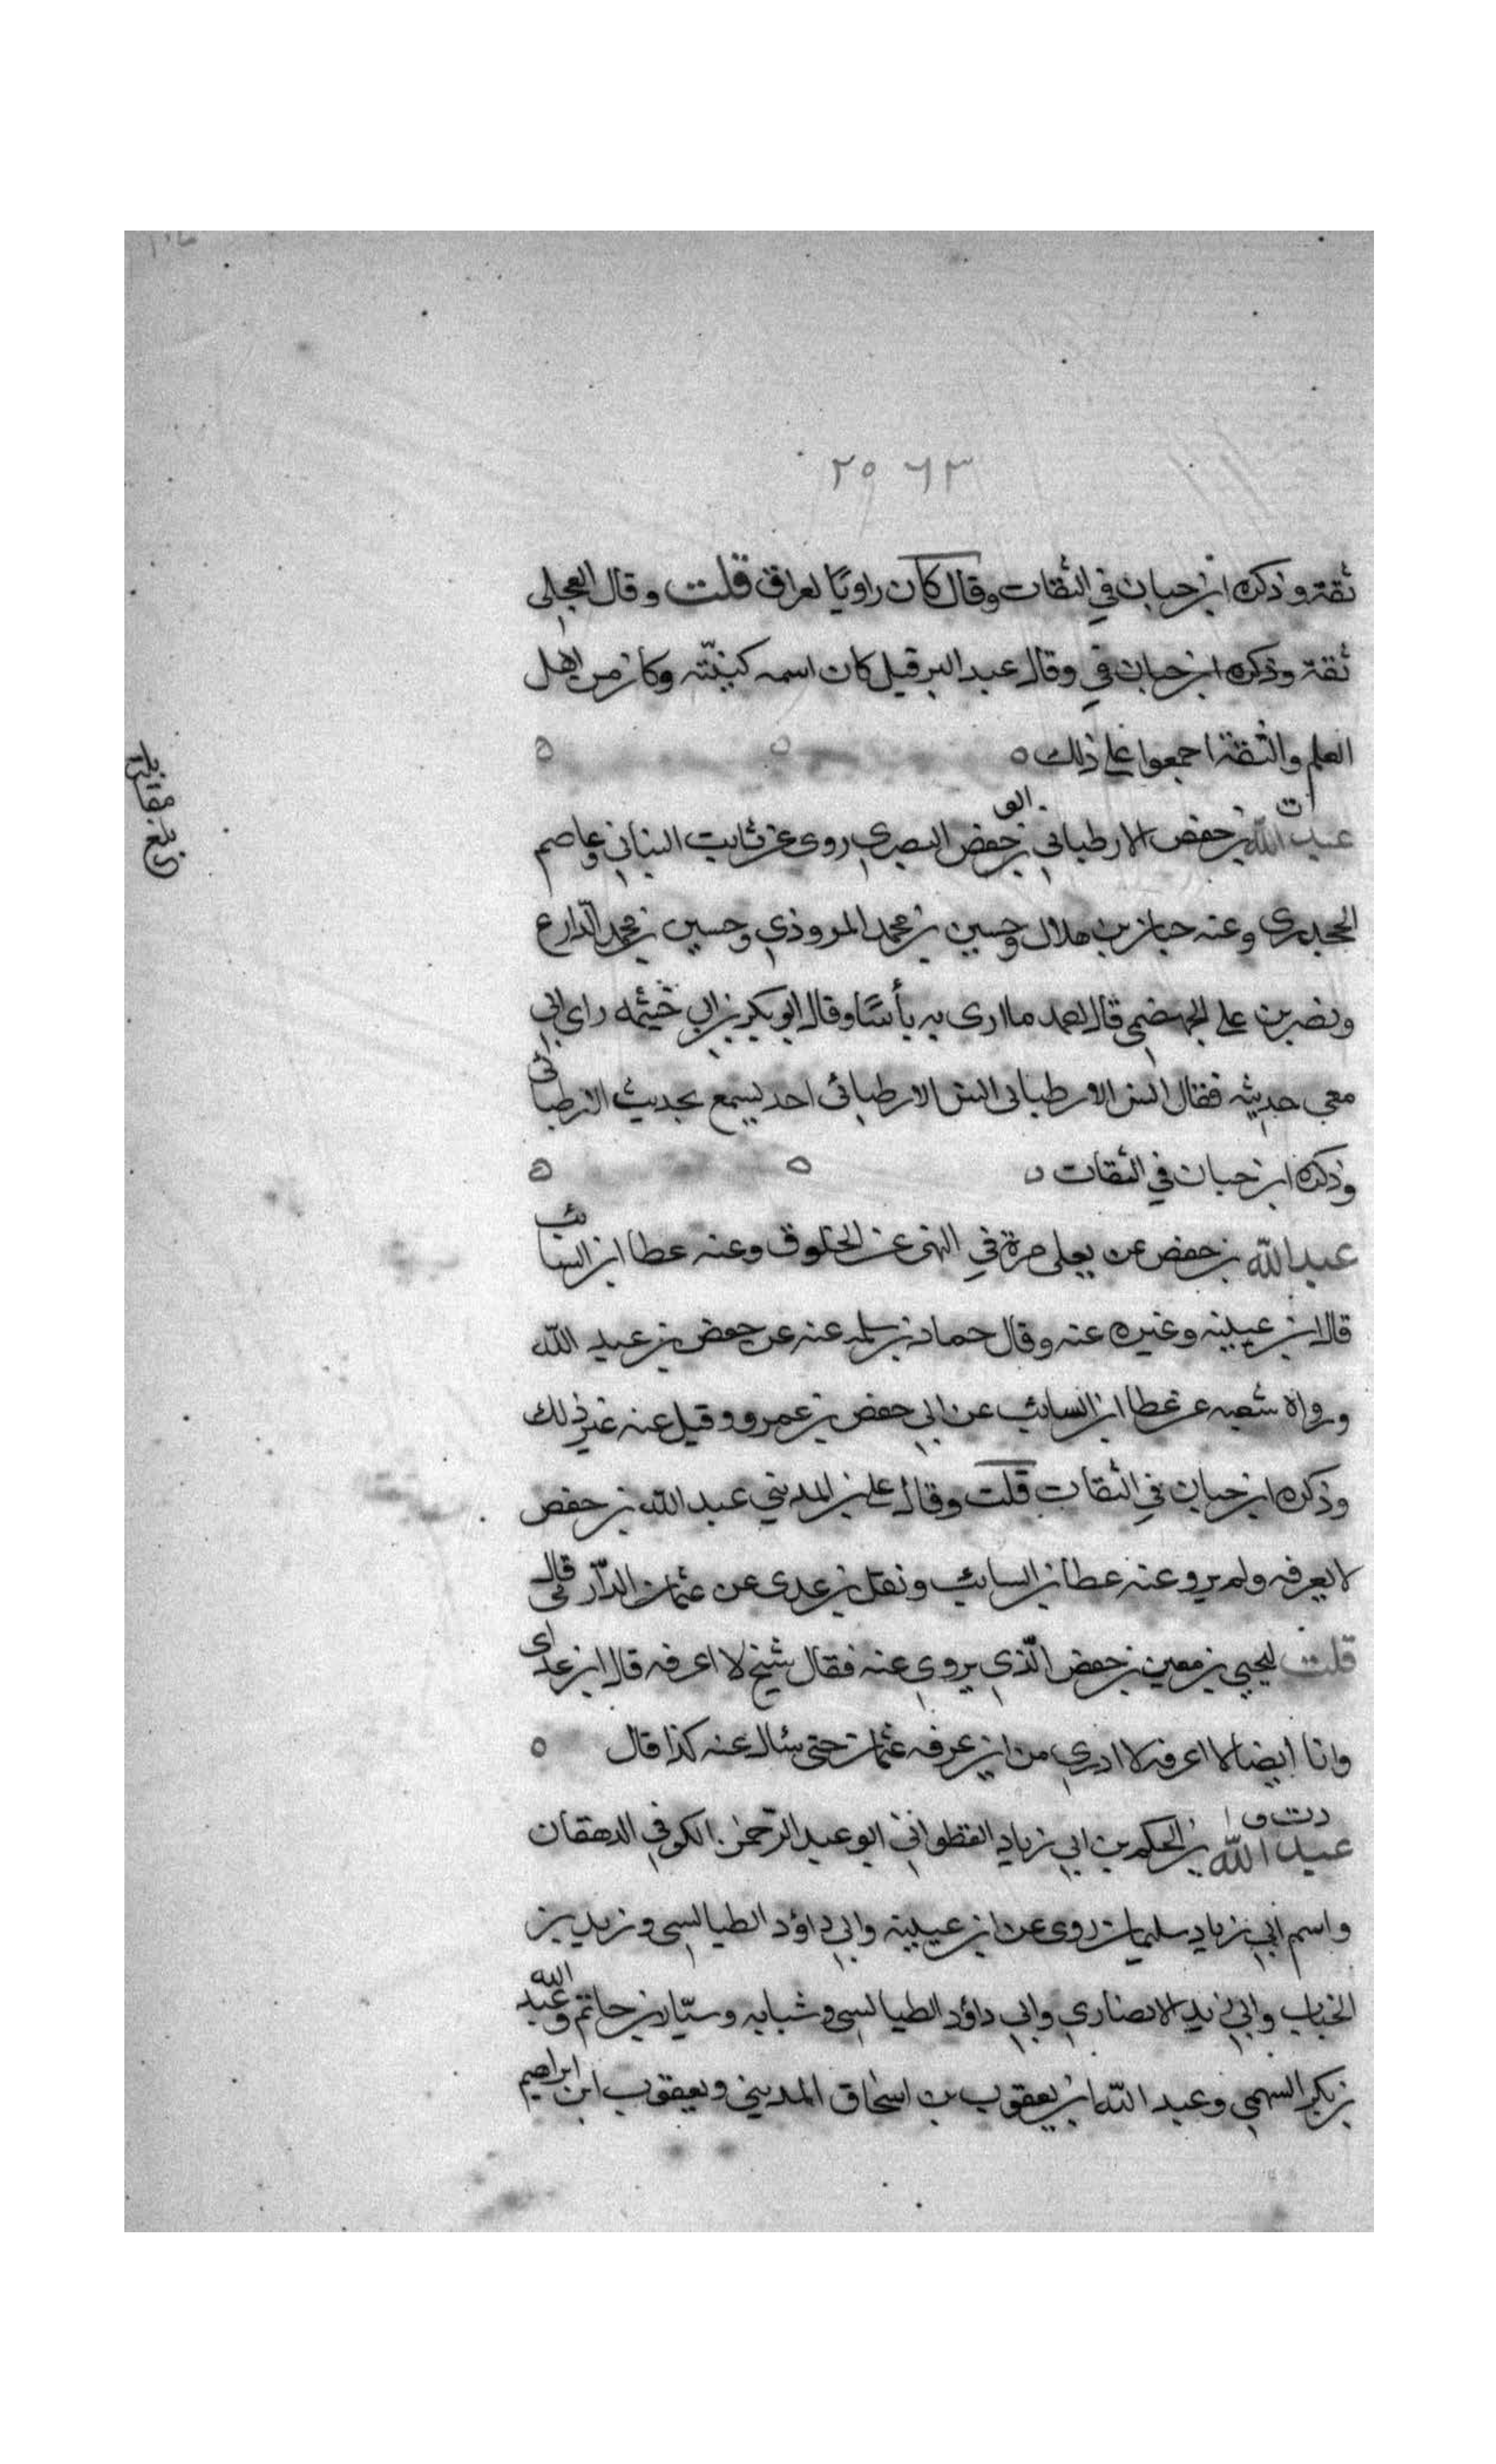 ٢٥٦٣
ثقة وذكره ابن حبان في الثقات وقال كان راويًا لعراق قلت وقال العجلى
ثقة وذكره ابن حبان في وقال عبد البر قيل كان اسمه كنيته وكان من اهل
العلم والثقة اجمعوا على ذلك ه
ت
عبد الله بن حفص الارطباني بن حفص البصرى روى عن ثابت البناني وعاصم
الجحدرى وعنه حبان بن هلال وحسين بن محمد المروذي وحسين بن محمد الذارع
ونصر بن على الجهضمى قال احمد ما ارى به بأسًا وقال ابو بكر بن ابي خيثمه راى ابي
معى حديثه فقال الارطبانى الارطبائى احد يسمع بحديث
وذكره ابن حبان في الثقات
عبد الله بن حفص عن يعلى مرة في النهى عن الخلوق وعنه عطا ابن السائب
قاله ابن عيينه وغيره عنه وقال حماد بن سلمه عنه عن حفص بن عبد الله
ورواه شعبه عن عطا ابن السايب عن ابى حفص بن عمرو وقيل عنه غير ذلك
وذكره ابن حبان في الثقات قلت وقال على بن المديني عبد الله بن حفص
لا يعرفه ولم يرو عنه عطا بن السايب ونقل بن عدى عن عثمان الدّارمى قال
قلت ليحيى بن معين بن حفص الّذي يروى عنه فقال شيخ لا اعرفه قال ابن عدى
وانا ايضا لا اعرفه لا ادرى من اين عرفه عثمان حتى سال عنه كذا قال ه
د ت ق
عبد الله بن الحكم بن ابي زياد القطواني ابو عبد الرّحمن الكوفي الدهقان
واسم ابي زياد سليمان روى عن ابن عيينة وابي داؤد الطيالسى وزيد بن
الحباب وابي زيد الانصاري وابي داؤد الطيالسى وشبابه وسيّار بن حاتم وعبد الله
بن بكر السهمى وعبد الله ابن يعقوب بن اسحاق المديني ويعقوب ابن ابراهيم